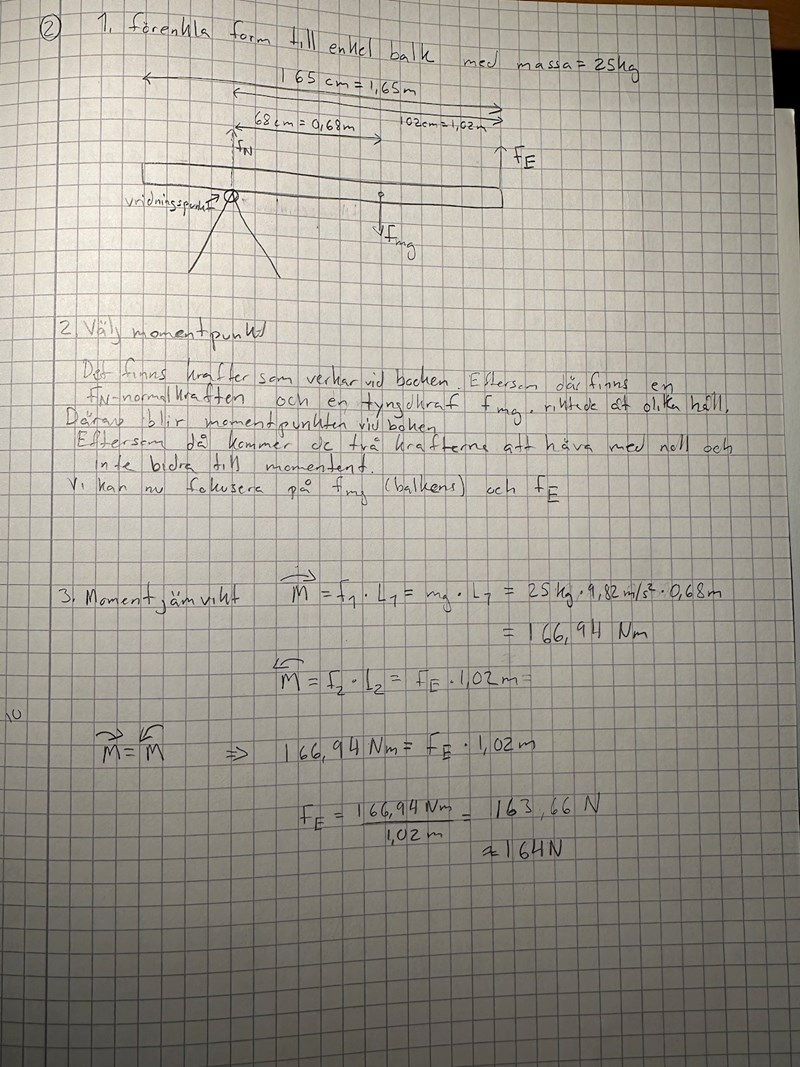 ② 1. förenkla form till enkel balk med massa = 25kg
165 cm = 1,65m
68cm = 0,68m
102cm = 1,02m
fN
fE
vridningspunkt
fmg
2 Välj momentpunkt
Det finns krafter som verkar vid bocken. Eftersom där finns en
fN-normalkraften och en tyngdkraf fmg. riktade åt olika håll.
Därav blir momentpunkten vid boken
Eftersom då kommer de två krafterna att häva med noll och
inte bidra till momentent.
Vi kan nu fokusera på fmg (balkens) och fE
3. Momentjämvikt M = f1 · L1 = mg · L1 = 25 kg · 9,82 m/s² · 0,68m
= 166,94 Nm
M = f2 · L2 = fE · 1,02m =
M = M ⇒ 166,94 Nm = FE · 1,02m
FE = 166,94 Nm / 1,02m = 163,66 N
≈ 164N